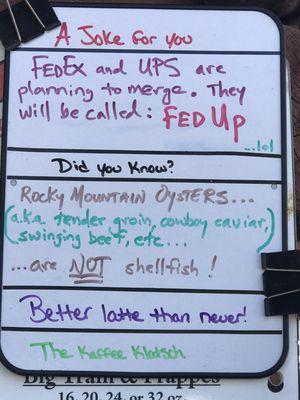 A Joke for you
FEDEX and UPS are
planning to merge. They
will be called: FED Up
...lol
Did you Know?
ROCKY MOUNTAIN OYSTERS...
(a.k.a. tender groin, cowboy caviar,
swinging beef, etc...)
...are NOT shellfish!
Better latte than never!
The Kaffee Klatsch
Big Train & Frappes
16, 20, 24, or 32 oz.